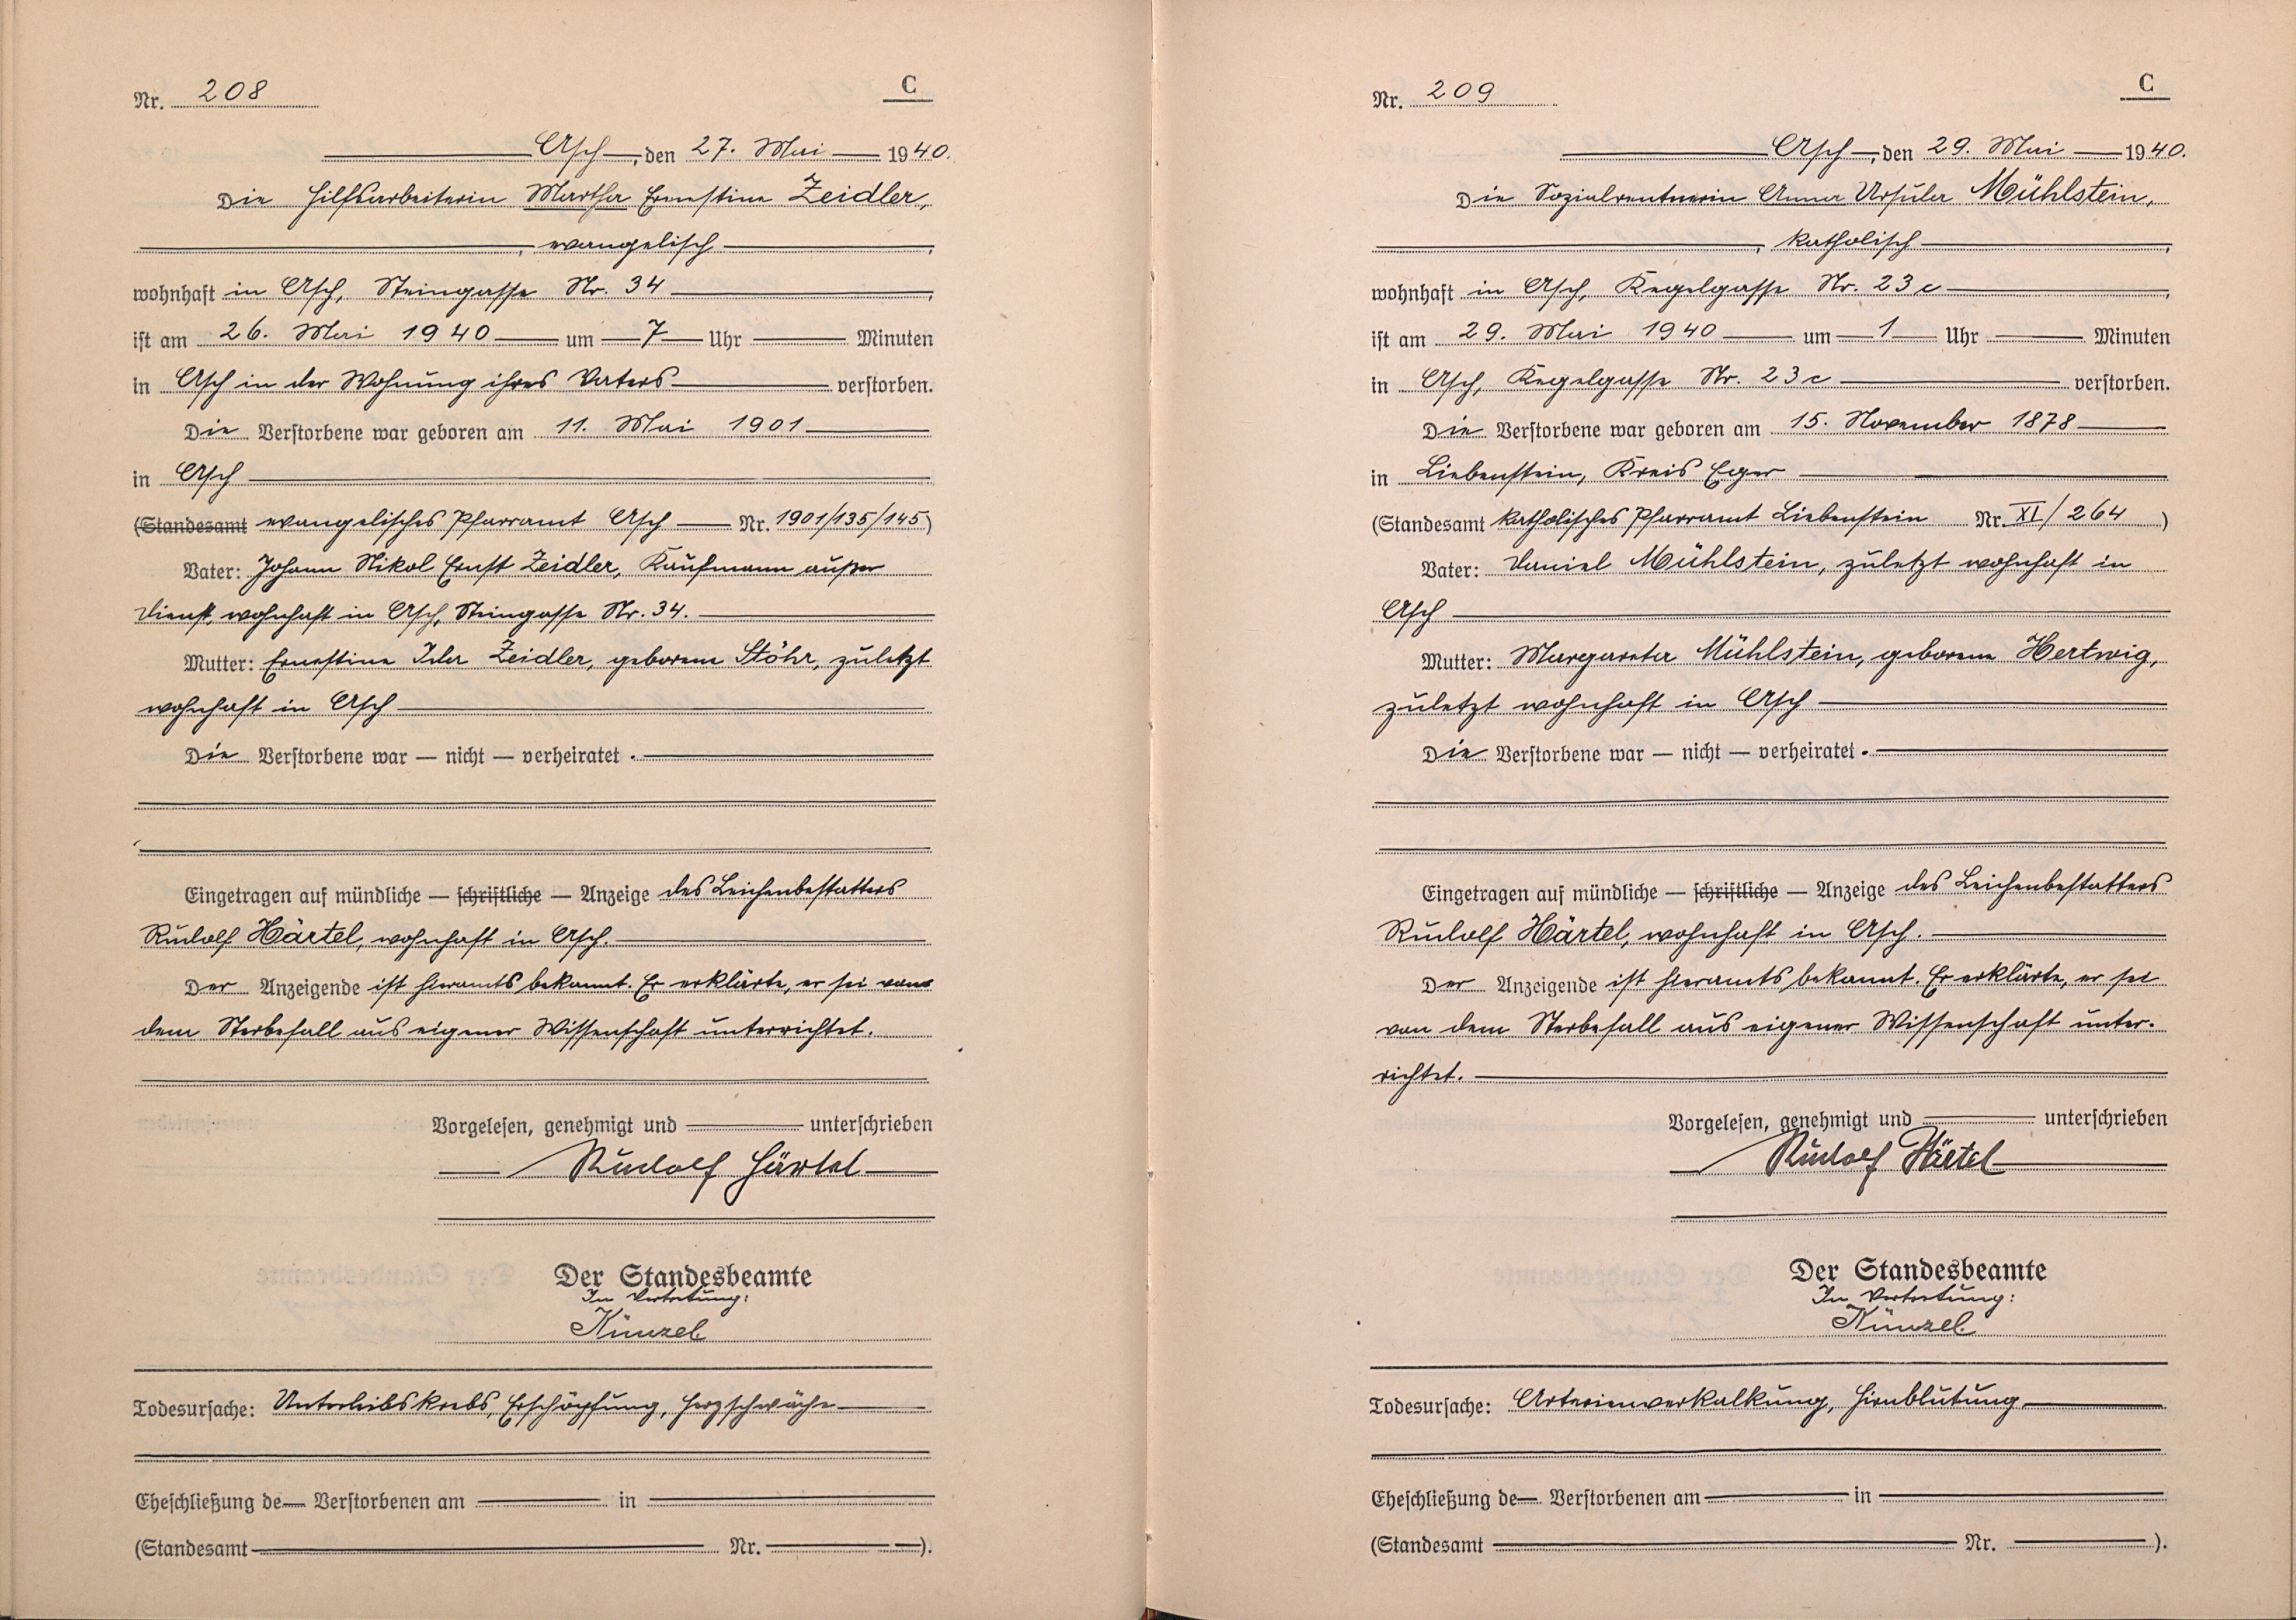 Nr. 208
C
Asch, den 27. Mai 1940.
Die Hilfsarbeiterin Martha Ernestine Zeidler,
, evangelisch,
wohnhaft in Asch, Steingasse Nr. 34,
ist am 26. Mai 1940 um 7 Uhr Minuten
in Asch in der Wohnung ihres Vaters verstorben.
Die Verstorbene war geboren am 11. Mai 1901
in Asch
(Standesamt evangelisches Pfarramt Asch Nr. 1901/135/145)
Vater: Johann Nikol Ernst Zeidler, Kaufmann außer
Dienst, wohnhaft in Asch, Steingasse Nr. 34.
Mutter: Ernestine Ida Zeidler, geborene Stöhr, zuletzt
wohnhaft in Asch
Die Verstorbene war — nicht — verheiratet.
Eingetragen auf mündliche — schriftliche — Anzeige des Leichenbestatters
Rudolf Härtel, wohnhaft in Asch.
Der Anzeigende ist hieramts bekannt. Er erklärte, er sei von
dem Sterbefall aus eigener Wissenschaft unterrichtet.
Vorgelesen, genehmigt und unterschrieben
Rudolf Härtel
Der Standesbeamte
In Vertretung:
Künzel
Todesursache: Unterleibskrebs, Erschöpfung, Herzschwäche
Eheschließung de Verstorbenen am in
(Standesamt Nr. ).
Nr. 209
C
Asch, den 29. Mai 1940.
Die Sozialrentnerin Anna Ursula Mühlstein,
, katholisch,
wohnhaft in Asch, Kegelgasse Nr. 23c,
ist am 29. Mai 1940 um 1 Uhr Minuten
in Asch, Kegelgasse Nr. 23c verstorben.
Die Verstorbene war geboren am 15. November 1878
in Liebenstein, Kreis Eger
(Standesamt katholisches Pfarramt Liebenstein Nr. XI/264)
Vater: Daniel Mühlstein, zuletzt wohnhaft in
Asch
Mutter: Margareta Mühlstein, geborene Hertwig,
zuletzt wohnhaft in Asch
Die Verstorbene war — nicht — verheiratet.
Eingetragen auf mündliche — schriftliche — Anzeige des Leichenbestatters
Rudolf Härtel, wohnhaft in Asch.
Der Anzeigende ist hieramts bekannt. Er erklärte, er sei
von dem Sterbefall aus eigener Wissenschaft unter-
richtet.
Vorgelesen, genehmigt und unterschrieben
Rudolf Härtel
Der Standesbeamte
In Vertretung:
Künzel
Todesursache: Arterienverkalkung, Hirnblutung
Eheschließung de Verstorbenen am in
(Standesamt Nr. ).